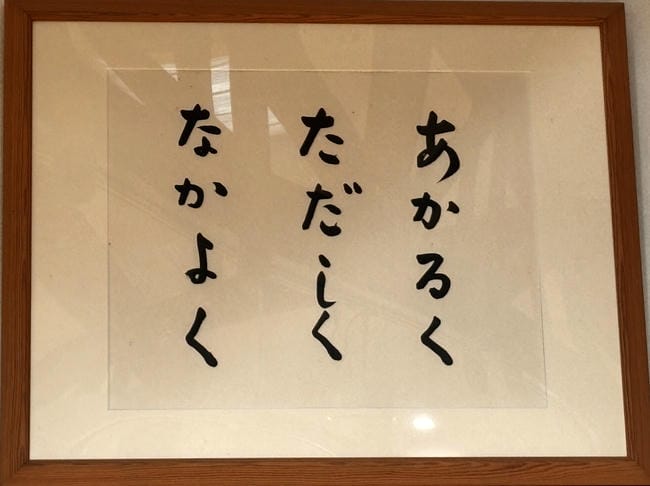 あかるく
ただしく
なかよく